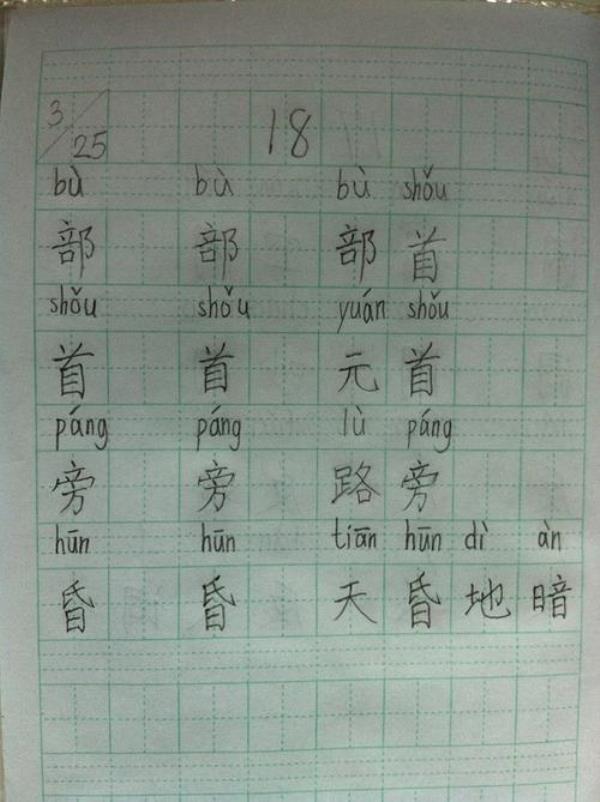 3/25 18
bù bù bù shǒu
部 部 部 首
shǒu shǒu yuán shǒu
首 首 元 首
páng páng lù páng
旁 旁 路 旁
hūn hūn tiān hūn dì àn
昏 昏 天 昏 地 暗